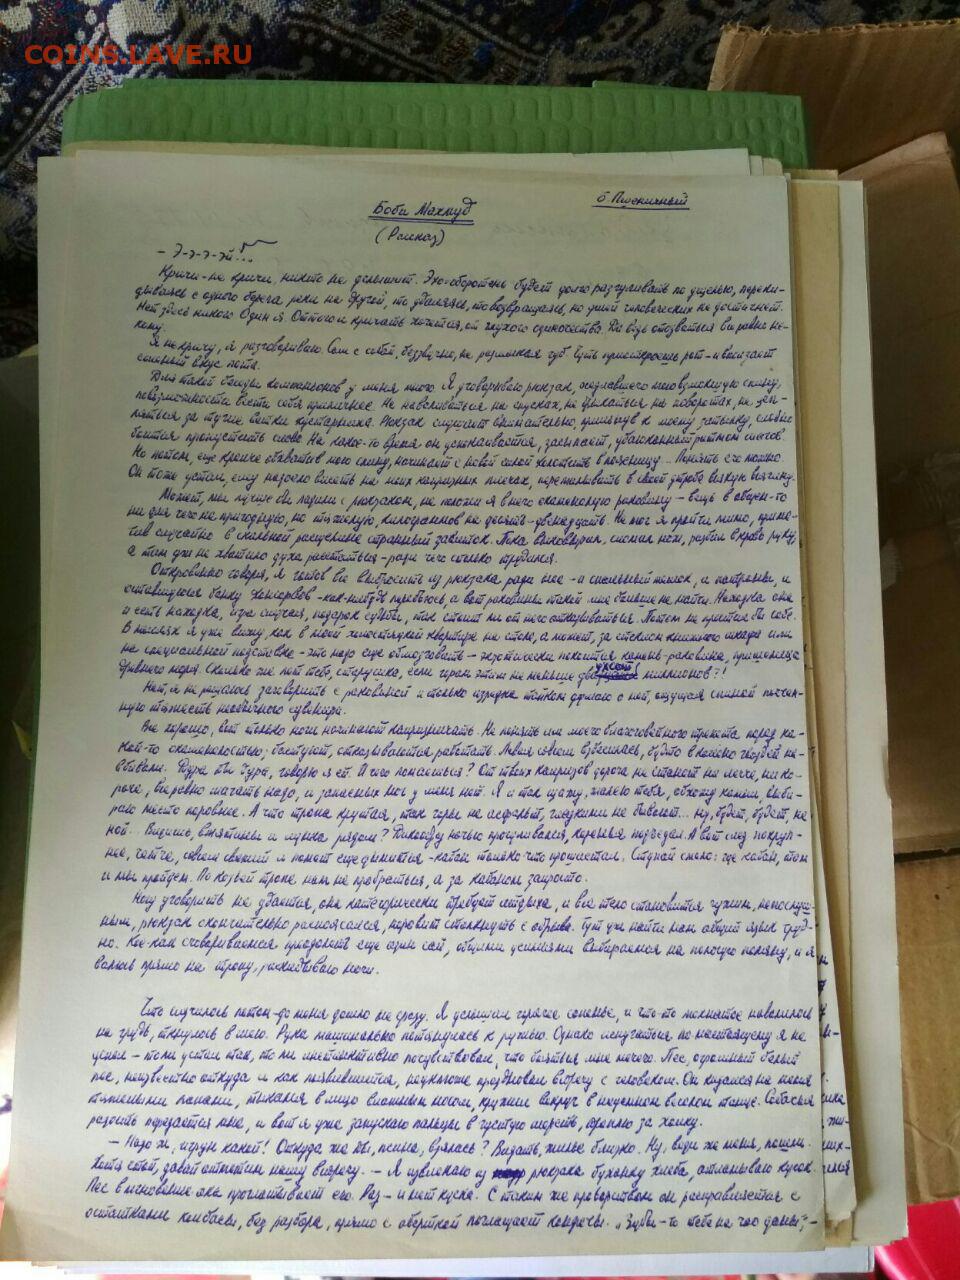 COINS.LAVE.RU
Б Пшеничный
Боби Махмуд
(Рассказ)
– Э-э-э-эй!...
Кричи-не кричи, никто не услышит. Эхо-оборотень будет долго разгуливать по ущелью, переки-
дываясь с одного берега реки на другой, то удаляясь, то возвращаясь, но ушей человеческих не достигнет.
Нет здесь никого. Один я. Оттого и кричать хочется, от глухого одиночества. Да ведь отозваться все равно не-
кому.
Я не кричу, я разговариваю. Сам с собой, беззвучно, не размыкая губ. Чуть приоткроешь рот – и вползает
соленый вкус пота.
Для такой беседы компаньонов у меня много. Я уговариваю рюкзак, оседлавшего мою взмокшую спину,
по возможности вести себя приличнее. Не наваливаться на спусках, не дёргаться на поворотах, не цеп-
ляться за тугие ветки кустарника. Рюкзак слушает внимательно, прильнув к моему затылку, словно
боится пропустить слово. На какое-то время он успокаивается, засыпает, убаюканный ритмом шагов.
Но потом, еще крепче обхватив мою спину, начинает с новой силой колотить в поясницу... Понять его можно.
Он тоже устал, ему надоело висеть на моих капризных плечах, перемалывать в своей утробе всякую всячину.
Может, мы лучше бы ладили с рюкзаком, не положи я в него окаменелую раковину – вещь в общем-то
ни для чего не пригодную, но тяжелую, килограммов на десять-двенадцать. Не мог я пройти мимо, приме-
тив случайно в скальной расщелине странный завиток. Пока выковырял, сломал нож, разбил в кровь руку,
а там уж не хватило духа расстаться – ради чего столько трудился.
Откровенно говоря, я готов все выбросить из рюкзака ради нее – и спальный мешок, и патроны, и
оставшуюся банку консервов – как-нибудь перебьюсь, а вот раковины такой мне больше не найти. Находка она
и есть находка, игра случая, подарок судьбы, так стоит ли от него отказываться. Может не простить бы себе.
В мыслях я уже вижу, как в моей холостяцкой квартире на столе, а может, за стеклом книжного шкафа или
на специальной подставке – это надо еще обмозговать – экзотически покоится камень-раковина, пришелица
древнего моря. Сколько же лет тебе, старушка, если горам этим не меньше двухсот миллионов?!
Нет, я не решаюсь заговорить с раковиной и только изредка тайком думаю о ней, ощущая спиной почтен-
ную тяжесть необычного сувенира.
Все хорошо, вот только ноги начинают капризничать. Не понять им моего благоговейного трепета перед ка-
кой-то окаменелостью, бастуют, отказываются работать. Левая совсем взбесилась, будто в колено гвоздей на-
вбивали. Дура ты дура, говорю я ей. И чего ломаешься? От твоих капризов дорога не станет ни легче, ни ко-
роче, все равно шагать надо, и запасных ног у меня нет. Я и так щажу, жалею тебя, обхожу камни, выби-
раю место поровнее. А что тропа крутая, так горы не асфальт, гладкими не бывают... Ну, будет, будет, не
ной... Видишь, вмятины и лунка рядом? Дикобраз ночью прогуливался, коренья подъедал. А вот след покруп-
нее, четче, совсем свежий и помет еще дымится – кабан только что прошествовал. Ступай смело: где кабан, там
и мы пройдем. По козьей тропе нам не пробраться, а за кабаном запросто.
Ногу уговорить не удается, она категорически требует отдыха, и все тело становится чужим, непослуш-
ным, рюкзак окончательно распоясался, норовит столкнуть с обрыва. Тут уж найти нам общий язык труд-
но. Кое-как сговариваемся преодолеть еще один сай, общими усилиями выбираемся на пологую поляну, и я
валюсь прямо на тропу, раскидываю ноги.
Что случилось потом – до меня дошло не сразу. Я услышал горячее сопенье, и что-то мохнатое навалилось
на грудь, ткнулось в шею. Рука машинально потянулась к ружью. Однако испугаться по-настоящему я не
успел – то ли устал так, то ли инстинктивно почувствовал, что бояться мне нечего. Пес, огромный белый
пес, неизвестно откуда и как появившийся, неуклюже праздновал встречу с человеком. Он кидался на меня
тяжелыми лапами, тыкался в лицо влажным носом, кружил вокруг в неуемном веселом танце. Собачья
радость передается мне, и вот я уже запускаю пальцы в густую шерсть, треплю за холку.
– Надо ж, игрун какой! Откуда же ты, псина, взялась? Видать, жилье близко. Ну, веди же меня, пошли.
Хотя стой, давай отметим нашу встречу. – Я извлекаю из рюкзака буханку хлеба, отламываю кусок.
Пес в мгновение ока проглатывает его. Раз – и нет куска. С таким же проворством он расправляется с
остатками колбасы, без разбора, прямо с оберткой поглощает конфеты. „Зубы-то тебе на что даны", –